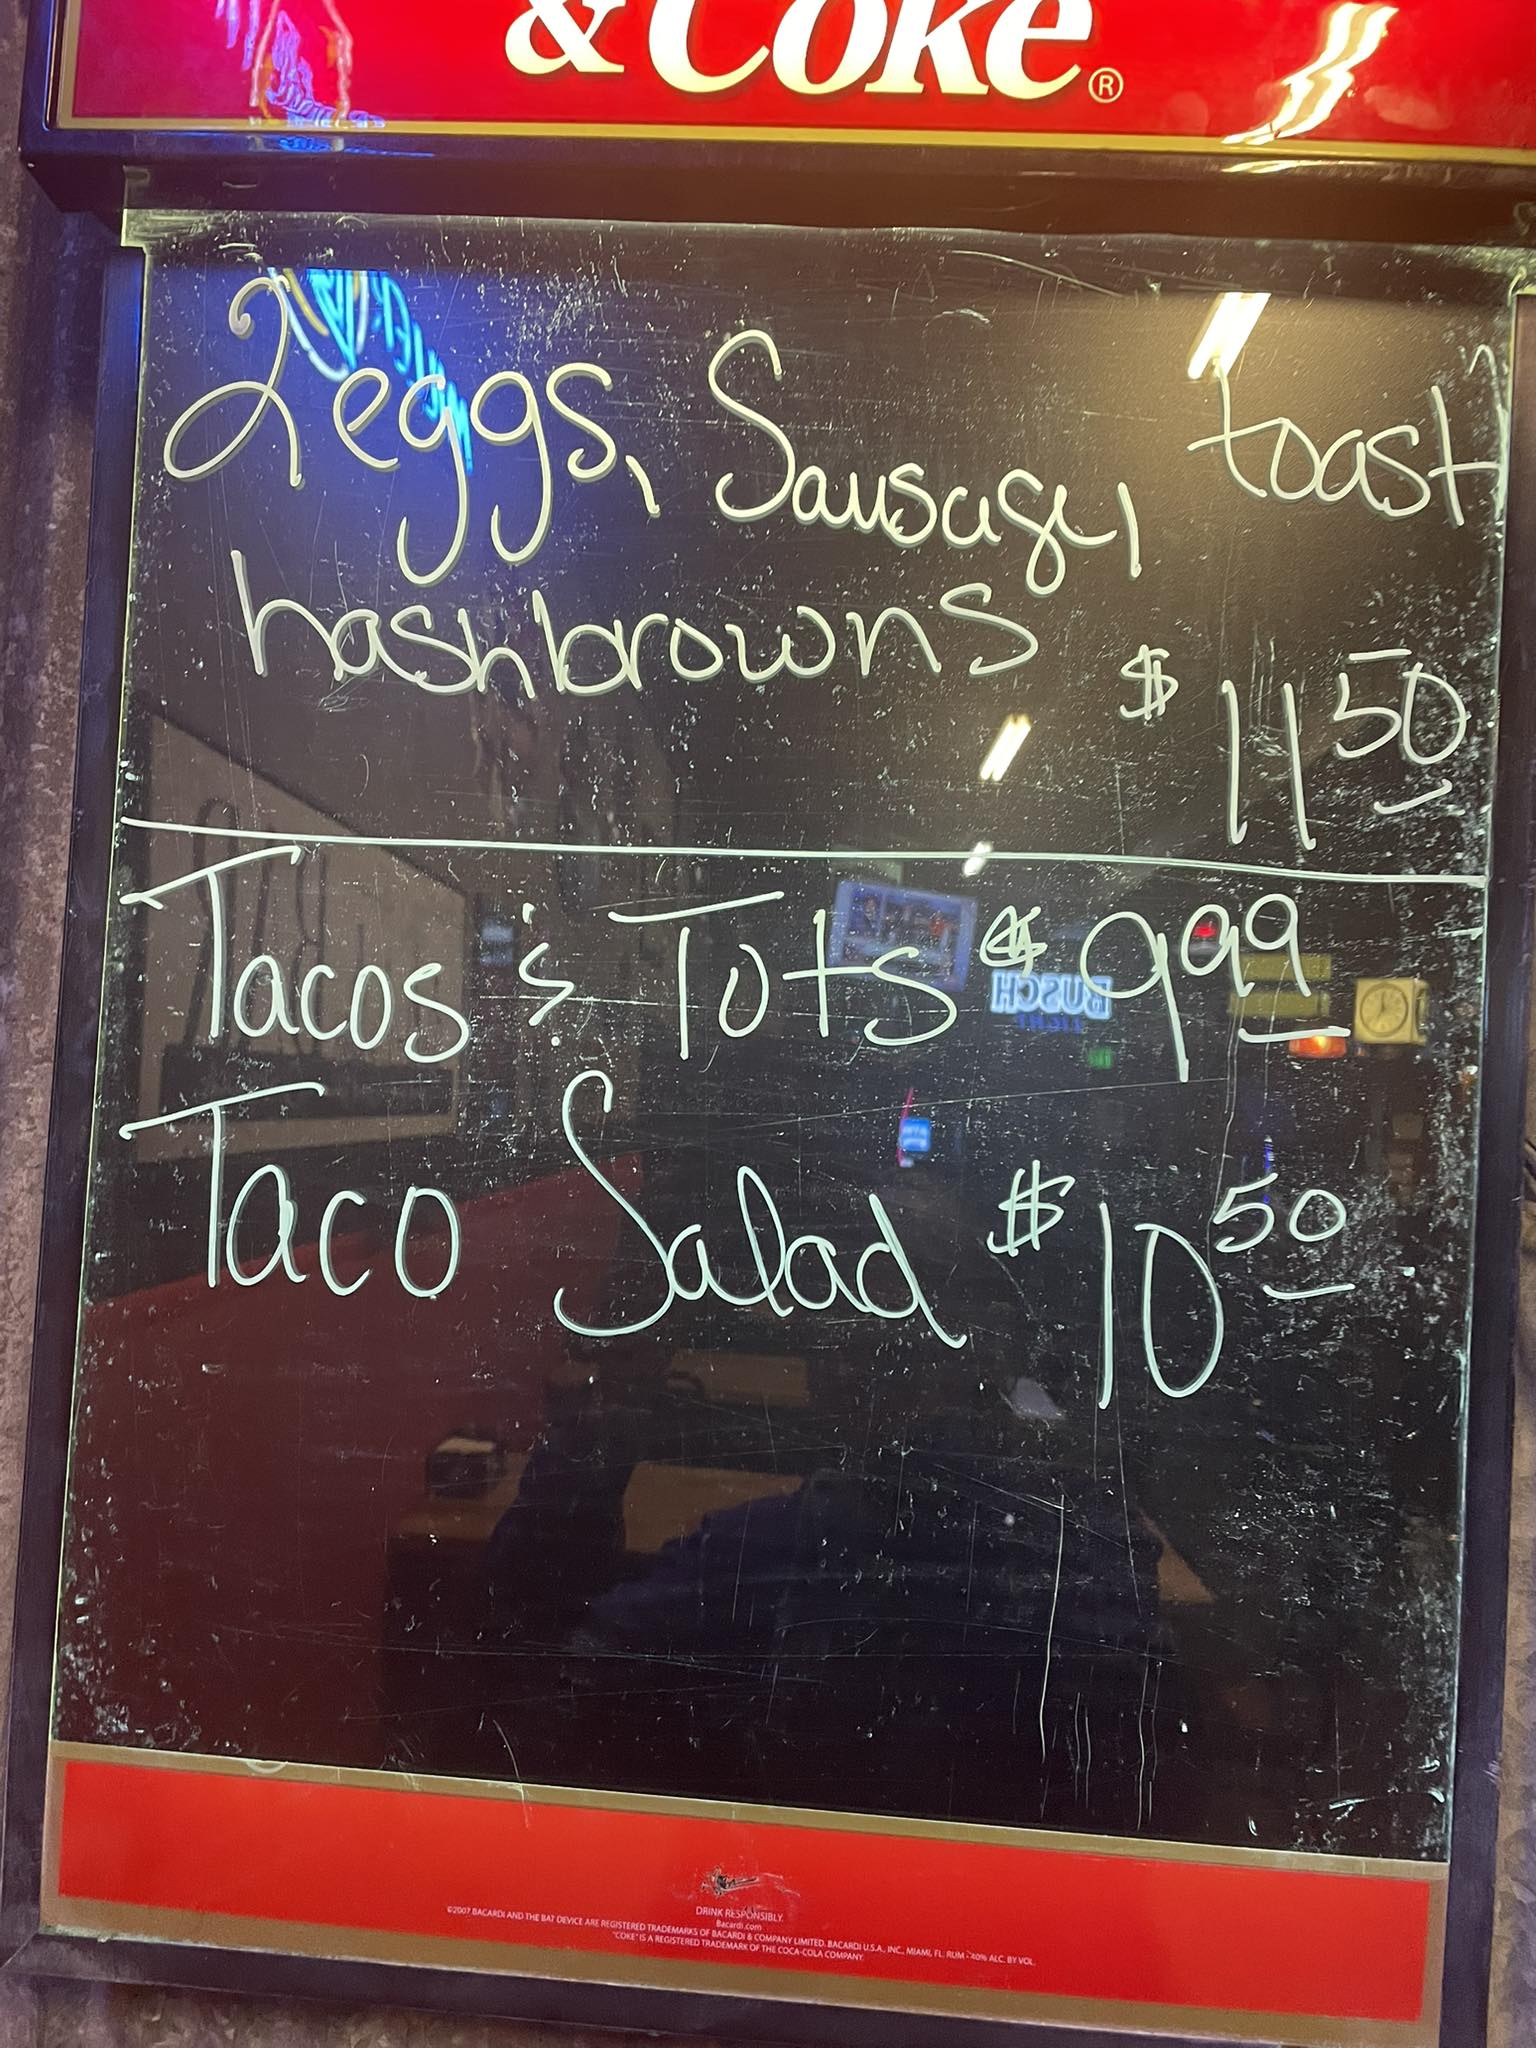 & Coke®
2 eggs, Sausage, toast
hashbrowns $11 50
Tacos & Tots $9 99
BUSCH
LIGHT
Taco Salad $10 50
DRINK RESPONSIBLY.
Bacardi.com
©2007 BACARDI AND THE BAT DEVICE ARE REGISTERED TRADEMARKS OF BACARDI & COMPANY LIMITED. BACARDI U.S.A., INC., MIAMI, FL. RUM - 40% ALC. BY VOL.
"COKE" IS A REGISTERED TRADEMARK OF THE COCA-COLA COMPANY.